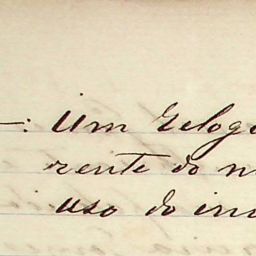 —: Um reloge
rente do n
uso do in